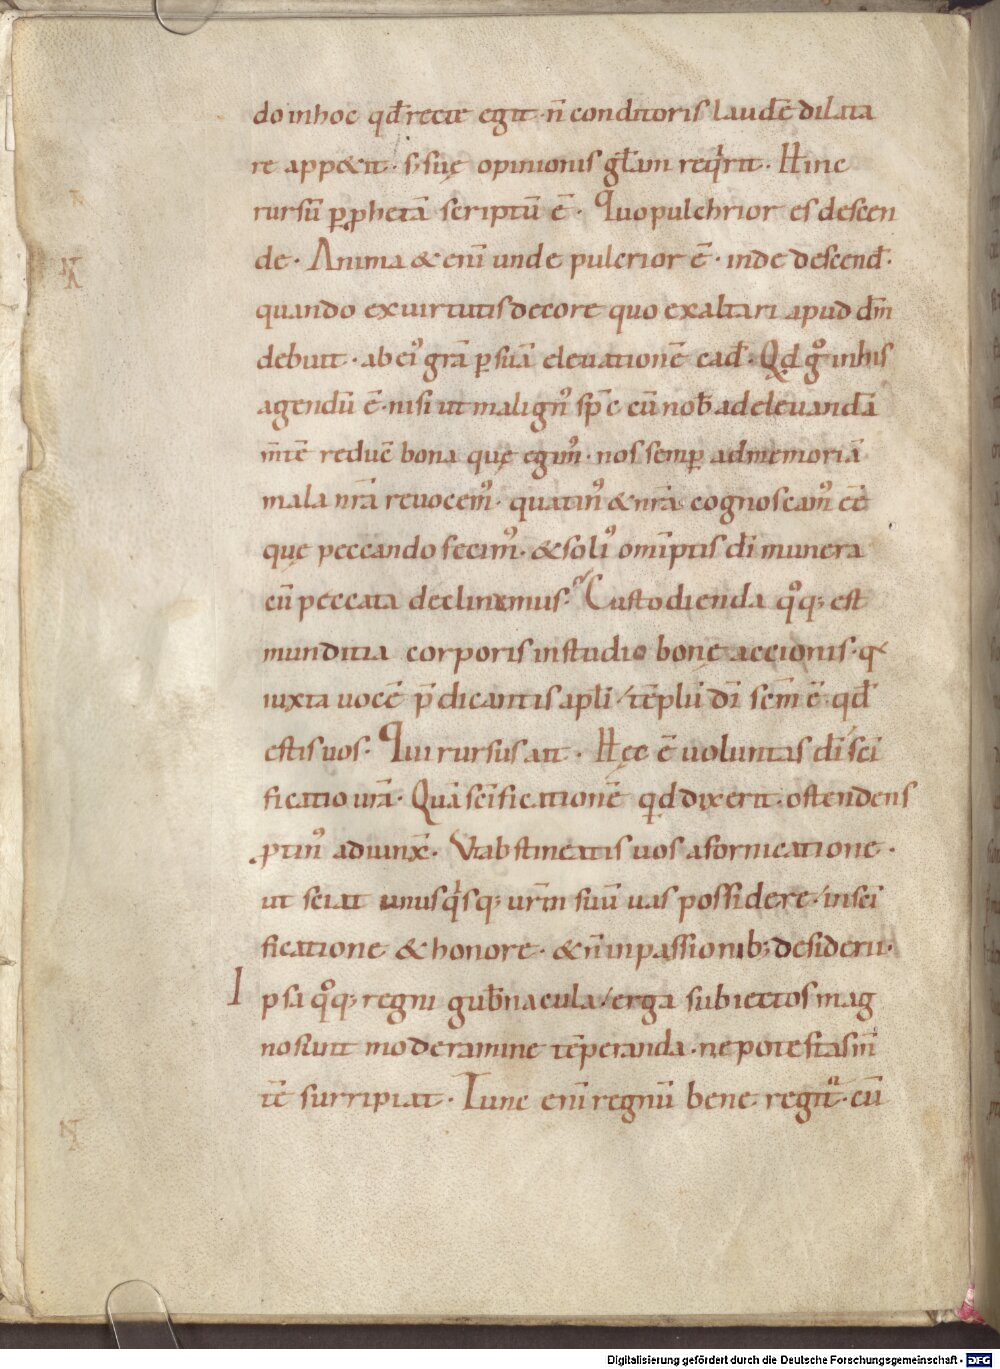 do inhoc qd̄ recte egit · n̄ conditoris laudē dilata
re app&it · s; suę opinionis gl̄am req̇rit · Hinc
rursū ꝑ ꝓphetā scriptū ē · Quo pulchrior es descen
de · Anima & eni unde pulcrior ē · inde descend̄ ·
quando ex uirtutis decore quo exaltari apud dm̄
debuit · ab ei᾿ grā ꝑ suā eleuationē cad̄ · Qd gͦ inhis
agendū ē · nisi ut malign᾿ sp̄c cū nob̄ ad eleuandā
m̄tē reduc̄ bona quę egim᾿ · nos semꝑ ad memoriā
mala nr̄a reuocem᾿ · quatin᾿ & nr̄a cognoscam᾿ eē
quę peccando fecim᾿ · & soli᾿ om̄iptis di munera
cū peccata declinemus · Custodienda qͦq; est
munditia corporis instudio bonę accionis · q
iuxta uocē p̄dicantis apl̄i / tēplū dī scm̄ ē qd̄
estis uos · Qui rursus ait · Hęc ē uoluntas dī sci
ficatio ur̄a · Quā scīficationē qd dixerit · ostendens
ꝓtin᾿ adiunx̄ · Vt abstineatis uos afornicatione ·
ut sciat unusq̇sq; ur̄m suū uas possidere / insci
ficatione & honore · & n̄ inpassionib; desiderii ·
Ipsa qͦq; regni gub̄nacula / erga subiectos mag
no sunt moderamine tēperanda · ne potestas m̄
tē surripiat · Tunc eni regnū bene regit᷑ · cū
Digitalisierung gefördert durch die Deutsche Forschungsgemeinschaft - DFG